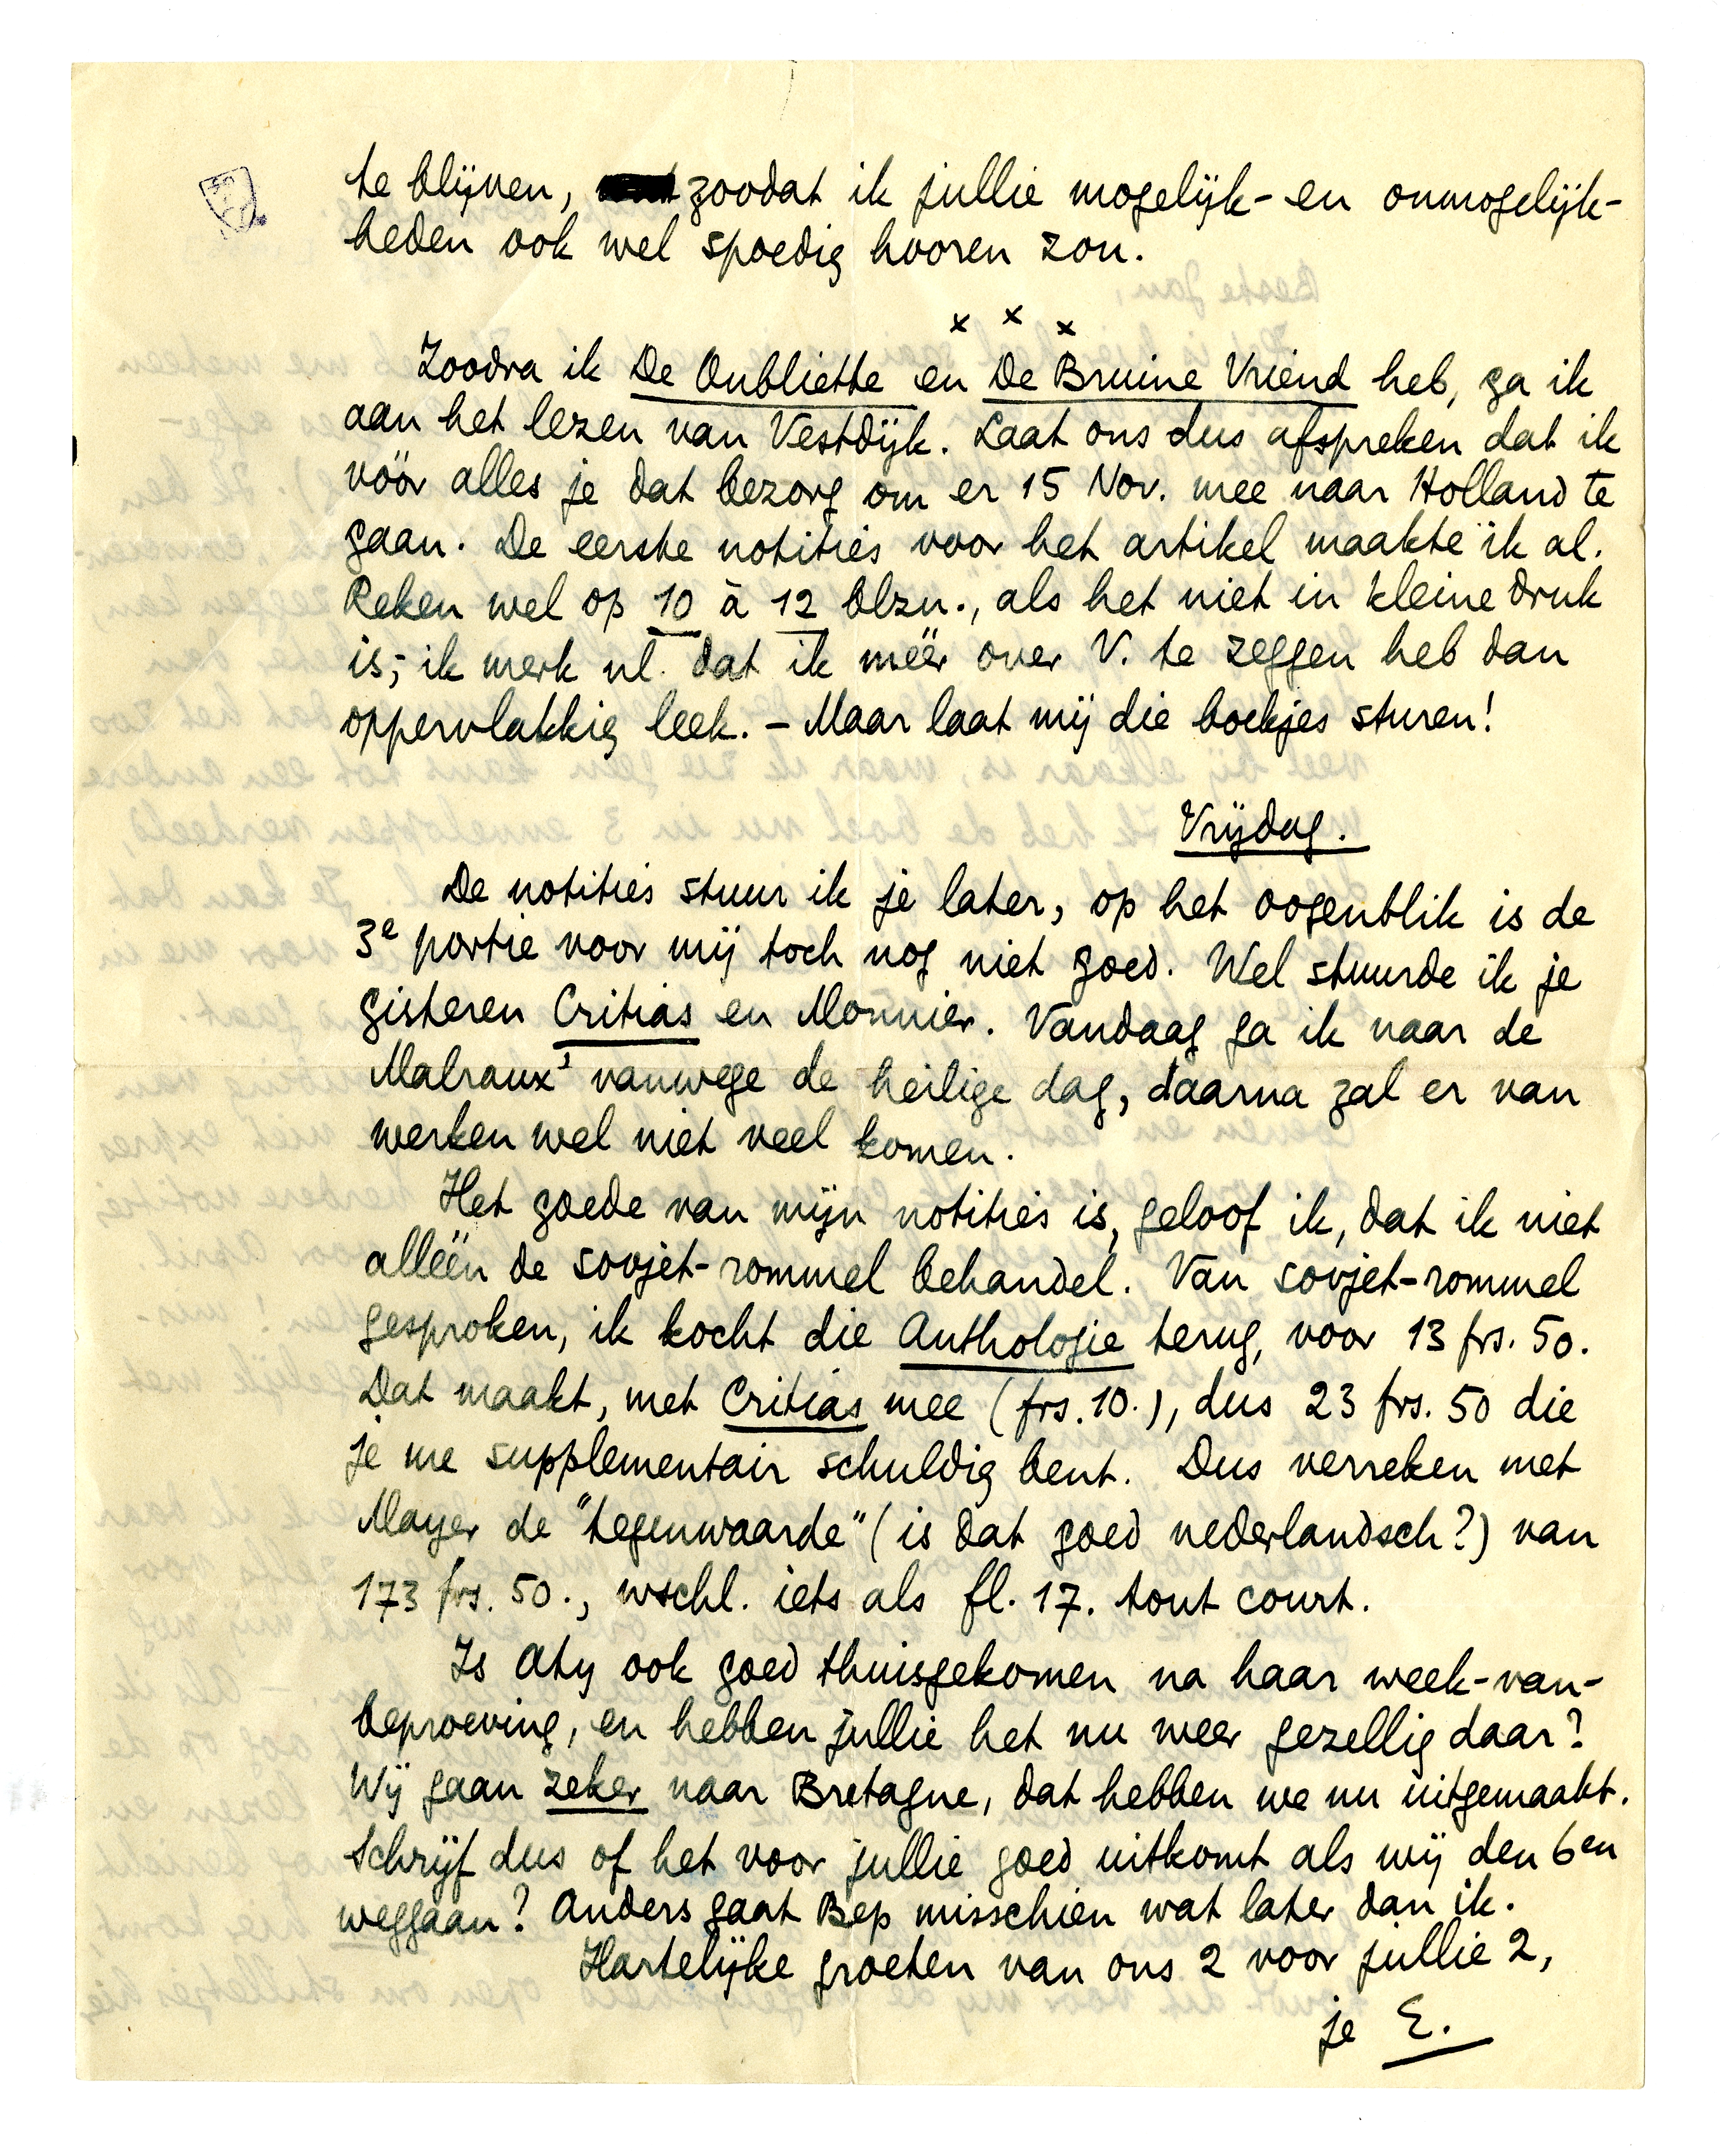 te blijven, zoodat ik jullie mogelijk- en onmogelijk-
heden ook wel spoedig hooren zou.
x x x
Zoodra ik De Oubliette en De Bruine Vriend heb, ga ik
aan het lezen van Vestdijk. Laat ons dus afspreken dat ik
vóór alles je dat bezorg om er 15 Nov. mee naar Holland te
gaan. De eerste notities voor het artikel maakte ik al.
Reken wel op 10 à 12 blzn., als het niet in kleine druk
is; ik merk nl. dat ik méér over V. te zeggen heb dan
oppervlakkig leek. – Maar laat mij die boekjes sturen!
Vrijdag.
De notities stuur ik je later, op het oogenblik is de
3e portie voor mij toch nog niet goed. Wel stuurde ik je
gisteren Critias en Monnier. Vandaag ga ik naar de
Malraux' vanwege de heilige dag, daarna zal er van
werken wel niet veel komen.
Het goede van mijn notities is, geloof ik, dat ik niet
alléén de sovjet-rommel behandel. Van sovjet-rommel
gesproken, ik kocht die Anthologie terug, voor 13 frs. 50.
Dat maakt, met Critias mee (frs. 10.), dus 23 frs. 50 die
je me supplementair schuldig bent. Dus verreken met
Mayer de "tegenwaarde" (is dat goed nederlandsch?) van
173 frs. 50., wschl. iets als fl. 17. tout court.
Is Aty ook goed thuisgekomen na haar week-van-
beproeving, en hebben jullie het nu weer gezellig daar?
Wij gaan zeker naar Bretagne, dat hebben we nu uitgemaakt.
Schrijf dus of het voor jullie goed uitkomt als wij den 6en
weggaan? Anders gaat Bep misschien wat later dan ik.
Hartelijke groeten van ons 2 voor jullie 2,
je E.